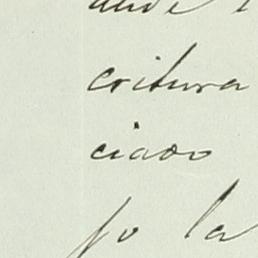 critura
ciado
so la